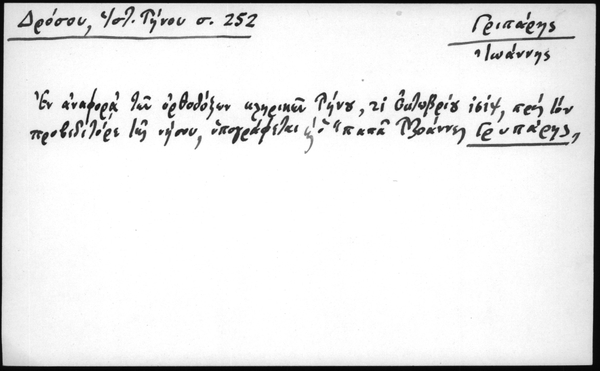 Δρόσου, Ἱστ. Τήνου σ. 252
Γριπάρης
Ἰωάννης
Ἐν ἀναφορᾷ τῶν ὀρθοδόξων κληρικῶν Τήνου, Ὀκτωβρίου πρὸς τὸν
προβεδιτόρε τῆς νήσου, ὑπογράφεται καὶ ὁ "παπᾶ Τζοάννες Γρυπάρης,